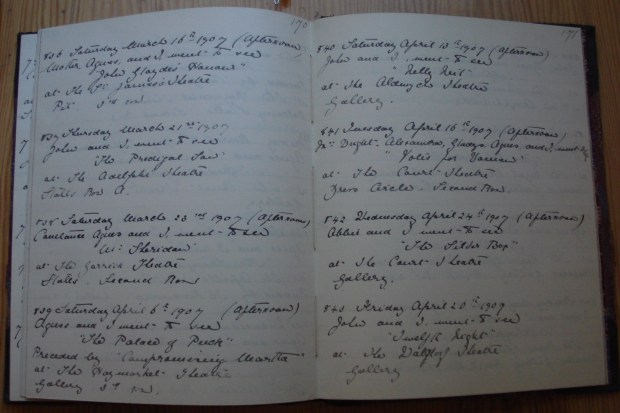 170
836 Saturday March 16th 1907 (Afternoon)
Mother, Agnes, and I, went to see
"John Glayde's Honour"
at The St. James's Theatre
Pit. 3rd row
837 Thursday March 21st 1907
John and I went to see
"The Prodigal Son"
at The Adelphi Theatre
Stalls Row A.
838 Saturday March 23rd 1907 (Afternoon)
Constance Agnes and I, went to see
"Mr Sheridan"
at The Garrick Theatre
Stalls. Second Row
839 Saturday April 6th 1907 (Afternoon)
Agnes and I went to see
"The Palace of Puck"
Preceded by "Compromising Martha"
at The Haymarket Theatre
Gallery 3rd row.
171
840 Saturday April 13th 1907 (Afternoon)
John and I went to see
"Nelly Neil"
at The Aldwych Theatre
Gallery.
841 Tuesday April 16th 1907 (Afternoon)
Dwight, Alexandra, Gladys Agnes, and I, went to see
"Votes for Women"
at The Court Theatre
Dress Circle. Second Row.
842 Wednesday April 24th 1907 (Afternoon)
and I went to see
"The Silver Box"
at The Court Theatre
Gallery.
843 Friday April 26th 1907
John and I went to see
"Twelfth Night"
at The Waldorf Theatre
Gallery